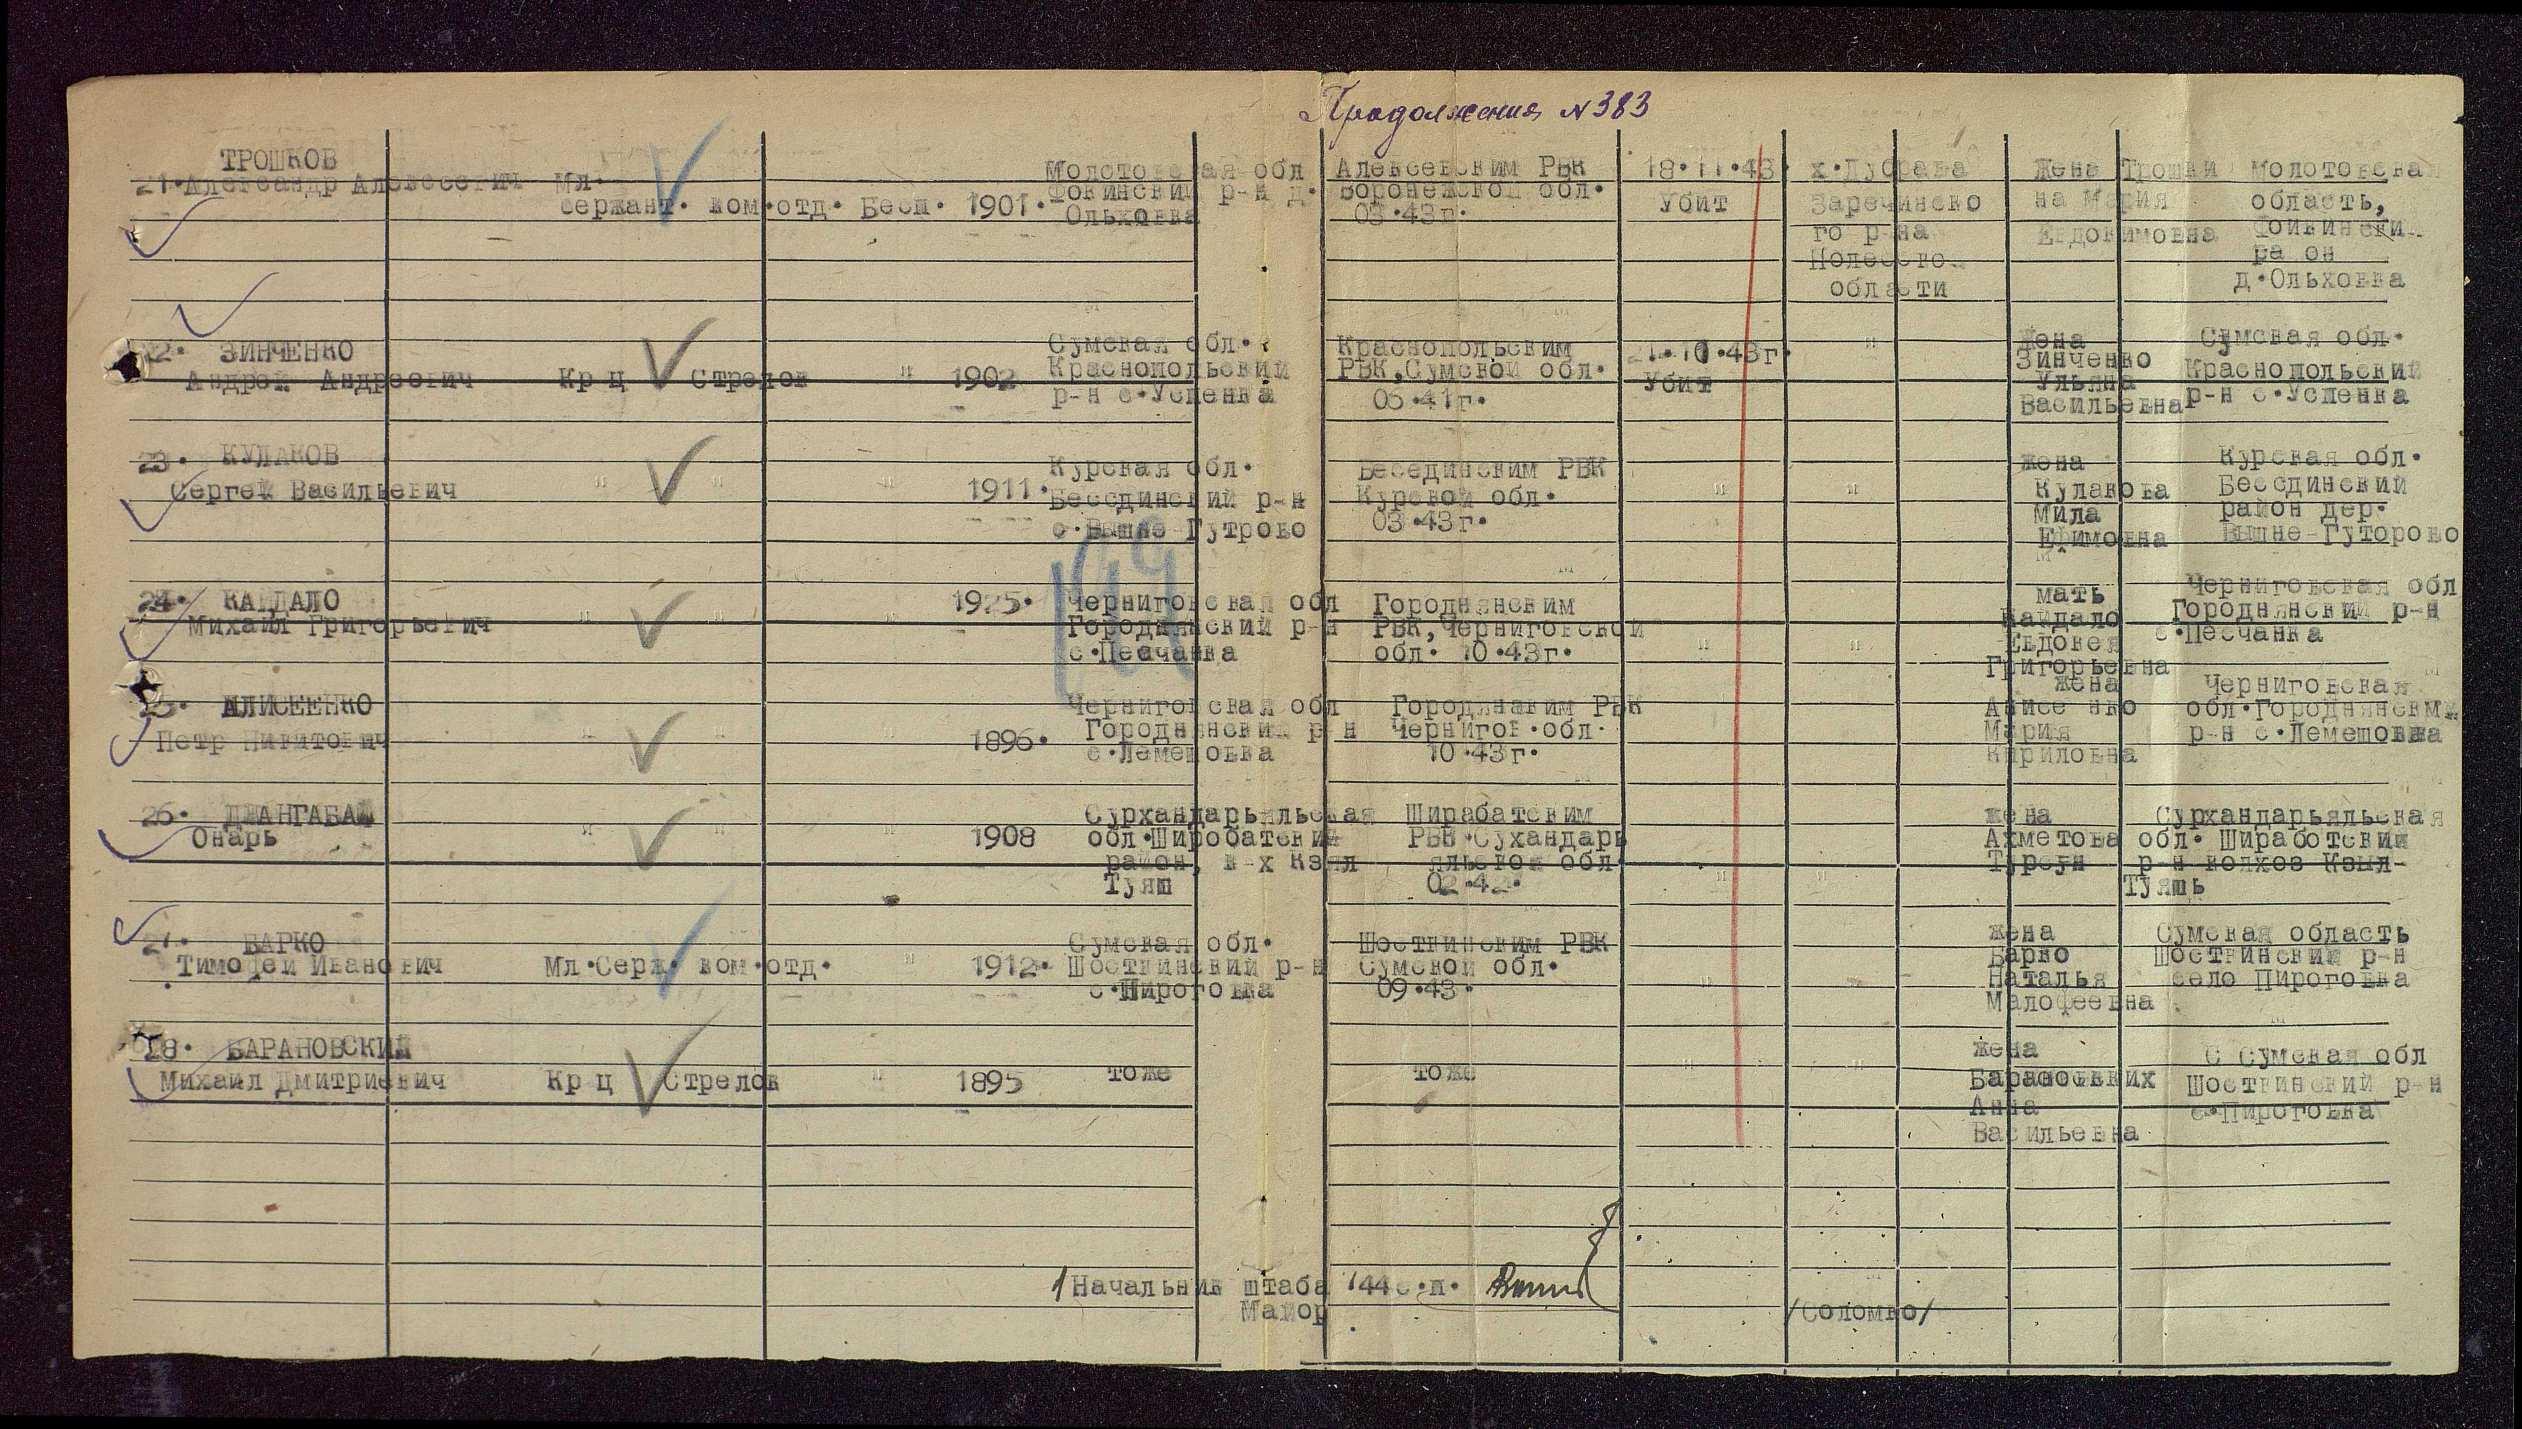 Продолжения №383
ТРОШКОВ
21. Александр Алексеевич Мл. сержант. ком.отд. Бесп. 1901. Молотовская обл Фокинский р-н д. Ольховка Алексеевским РВК Воронежской обл. 03.43г. 18.11.43 Убит х.Дубрава Заречинско го р-на Полесско области Жена Трошки на Мария Евдокимовна Молотовская область, Фойкинский ра он д.Ольховка
22. ЗИНЧЕНКО
Андрей Андреевич Кр-ц Стрелок " 1902 Сумская обл. Краснопольский р-н с.Успенка Краснопольским РВК,Сумской обл. 21.10.43г. Убит " Жена Зинченко Ульяна Васильевна Сумская обл. Краснопольский р-н с.Успенка
23. КУЛАКОВ
Сергей Васильевич " " " 1911. Курская обл. Бесединский р-н с.Вышне Гутрово Бесединским РВК Курской обл. 03.43г. " " жена Кулакова Мила Ефимовна Курская обл. Бессдинский район дер. Вышне-Гуторово
24. КАЙДАЛО
Михаил Григорьевич " " " 1925. Черниговская обл Городнянский р-н с.Песчанка Городнянским РВК,Черниговской обл. 10.43г. " " мать Кайдало Евдокея Григорьевна Черниговская обл Городнянский р-н с.Песчанка
25. АЛИСЕЕНКО
Петр Никитович " " " 1896. Черниговская обл Городнянский р-н с.Лемешовка Городнянским РВК Чернигов.обл. 10.43г. жена Алисе нко Мария Кириловна Черниговская обл.Городнянский р-н с.Лемешовка
26. ДЖАНГАБАЙ
Онарь " " " 1908 Сурхандарьяльская обл.Широбатский район, к-х Кзыл Туяш Ширабатским РВК.Сухандарь яльской обл 02.42. " " жена Ахметова Турсун Сурхандарьяльская обл. Ширабoтский р-н колхоз Кзыл-Туяшь
27. БАРКО
Тимофей Иванович Мл.Серж. ком.отд. " 1912. Сумская обл. Шосткинский р-н с.Пироговка Шосткинским РВК Сумской обл. 09.43. " " жена Барко Наталья Малофеевна Сумская область Шосткинский р-н село Пироговка
28. БАРАНОВСКИЙ
Михаил Дмитриевич Кр-ц Стрелок " 1895 тоже тоже " " жена Барановских Анна Васильевна С Сумская обл Шосткинский р-н с.Пироговка
149
Начальник штаба 144 с.п.
Майор /Соломко/